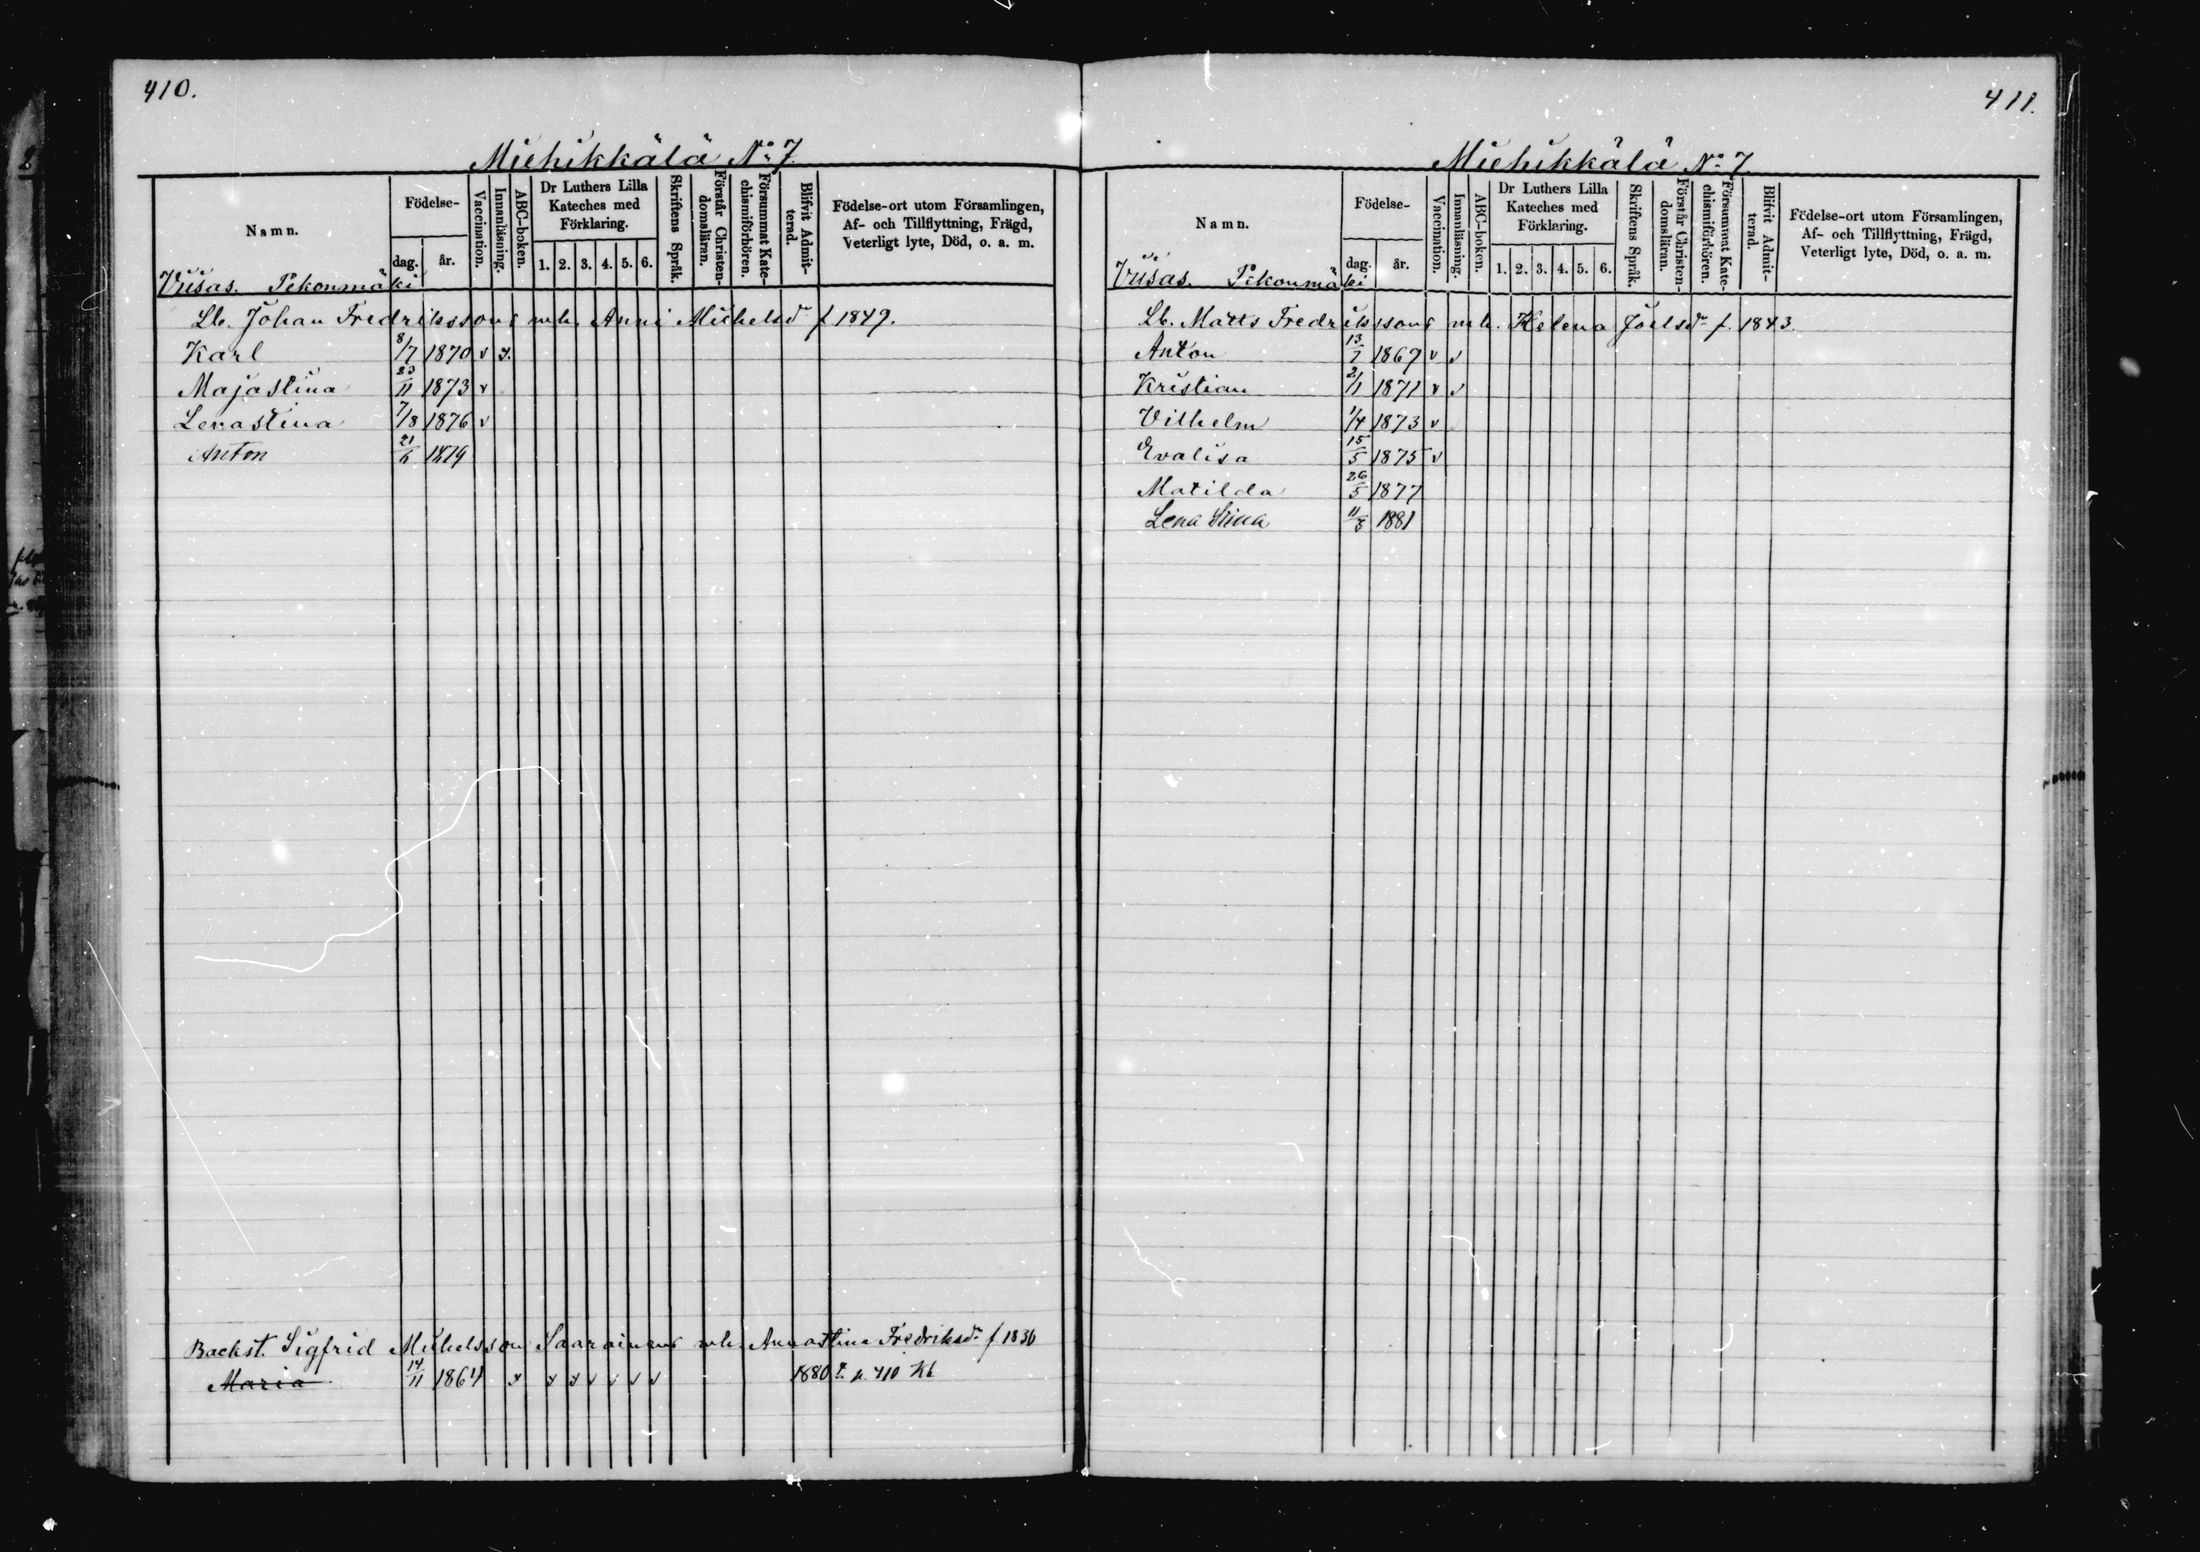 410.
Miehikkälä No 7
Namn.
Födelse-
dag.
år.
Vaccination.
Innanläsning.
ABC-boken.
Dr Luthers Lilla
Kateches med
Förklaring.
1. 2. 3. 4. 5. 6.
Skriftens Språk.
Förstår Christen-
domsläran.
Försummat Kate-
chismiförhören.
Blifvit Admit-
terad.
Födelse-ort utom Församlingen,
Af- och Tillflyttning, Frägd,
Veterligt lyte, Död, o. a. m.
Pekonmäki
Lb. Johan Fredrikssons m h. Anni Michelsdr f 1849.
Karl 8/7 1870 v
Majastina 23/11 1873 v
Lenastina 7/8 1876 v
Anton 21/6 1879
Backst. Sigfrid Michelsson Saarainens m h. Annastina Fredriksdr f 1836
Maria 14/11 1864 v v v v v v v 1880 p. 410 Kb
411.
Miehikkälä No 7.
Namn.
Födelse-
dag.
år.
Vaccination.
Innanläsning.
ABC-boken.
Dr Luthers Lilla
Kateches med
Förklaring.
1. 2. 3. 4. 5. 6.
Skriftens Språk.
Förstår Christen-
domsläran.
Försummat Kate-
chismiförhören.
Blifvit Admit-
terad.
Födelse-ort utom Församlingen,
Af- och Tillflyttning, Frägd,
Veterligt lyte, Död, o. a. m.
Pekonmäki
Lb. Matts Fredrikssons m h. Helena Joelsdr f. 1843.
Anton 13/7 1869 v v
Kristian 2/11 1871 v v
Vilhelm 1/4 1873 v
Evalisa 15/5 1875 v
Matilda 26/5 1877
Lena Stina 11/8 1881